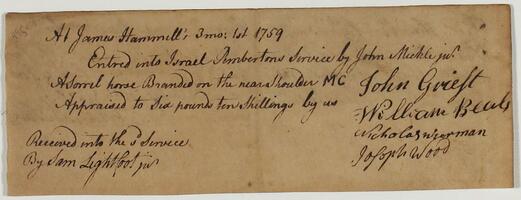 At James Hammell's 3mo: 1st 1759
Entred into Israel Pembertons Service by John Mickle junr
A Sorrel horse Branded on the near Shoulder MC
Appraised to Six pounds ten Shillings by us
John Griest
William Beals
Nicholas Wierman
Joseph Wood
Received into the sd Service
By Sam Lightfoot junr